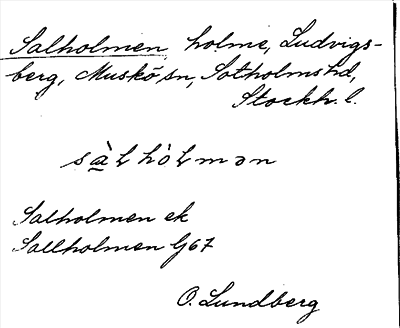 Salholmen, holme, Ludvigs-
berg, Muskö sn, Sotholms hd,
Stockh. l.
sàlhòlmən
Salholmen ek
Sallholmen G67
O. Lundberg